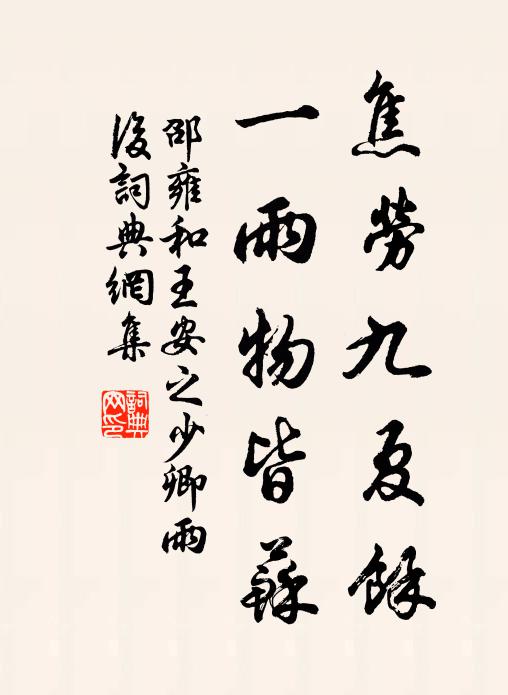 焦勞九夏餘
一雨物皆蘇
邵雍和王安之少卿雨
後詞典網集
詞典網印